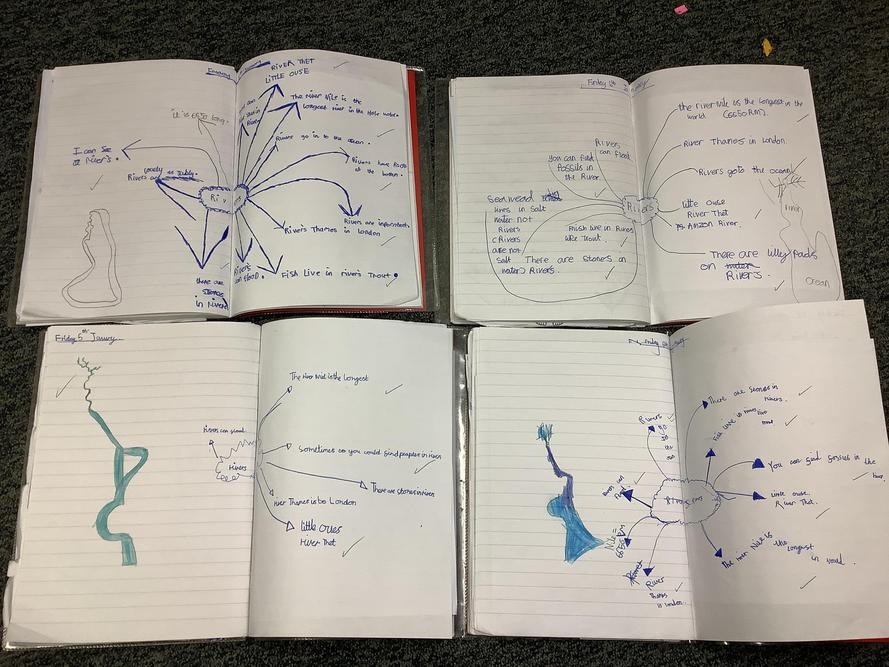 RIVER THET
LITTLE OUSE
The river Nile is the
longest river in the
it is 6650 long.
Rivers go in to the ocean.
I can see
a river.
Rivers have Rocks
at the bottom.
lovely
Rivers are
Rivers
Rivers are important
Rivers Thames in London
Rivers
can flood.
Fish Live in rivers Trout
there are
stones
in Rivers
Friday
the river Nile is the longest in the
world (6650KM).
Rivers
can flood.
River Thames in London.
You can find
fossils in
the River
Rivers go to the ocean
Seaweed
lives in Salt
water not
Rivers
(Rivers
are not
salt
water)
Rivers
Little Ouse
River Thet
Amazon River.
Fish live in Rivers
like Trout.
There are Stones in
Rivers.
There are lilly pads
on water
Rivers.
Ocean
Friday 5th January
The river Nile is the longest
Rivers can flood
Sometimes you could find people in river
Rivers
There are stones in river
river Thames is be London
little oues
River Thet
There are Stones in
rivers.
Rivers
go
to
Fish live in rivers like
trout
You can find fossils in the
River.
Rivers can
flood.
Little ouse.
River Thet.
Nile =
6650KM
The river Nile is
the longest
in world.
River
Thames
in London.